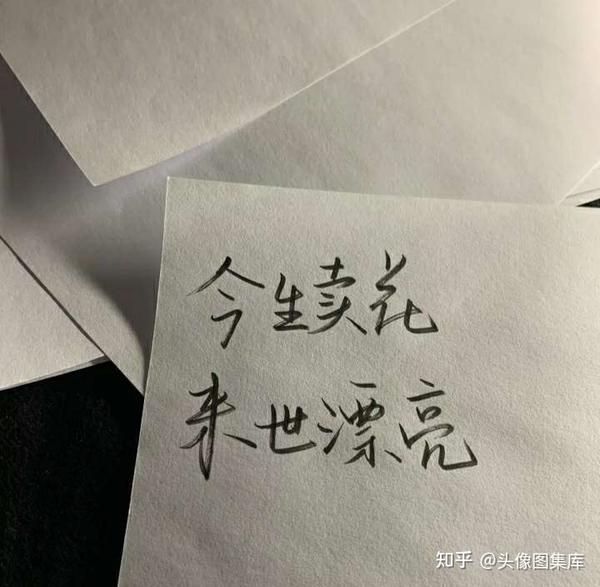 今生卖花
来世漂亮
知乎 @头像图集库